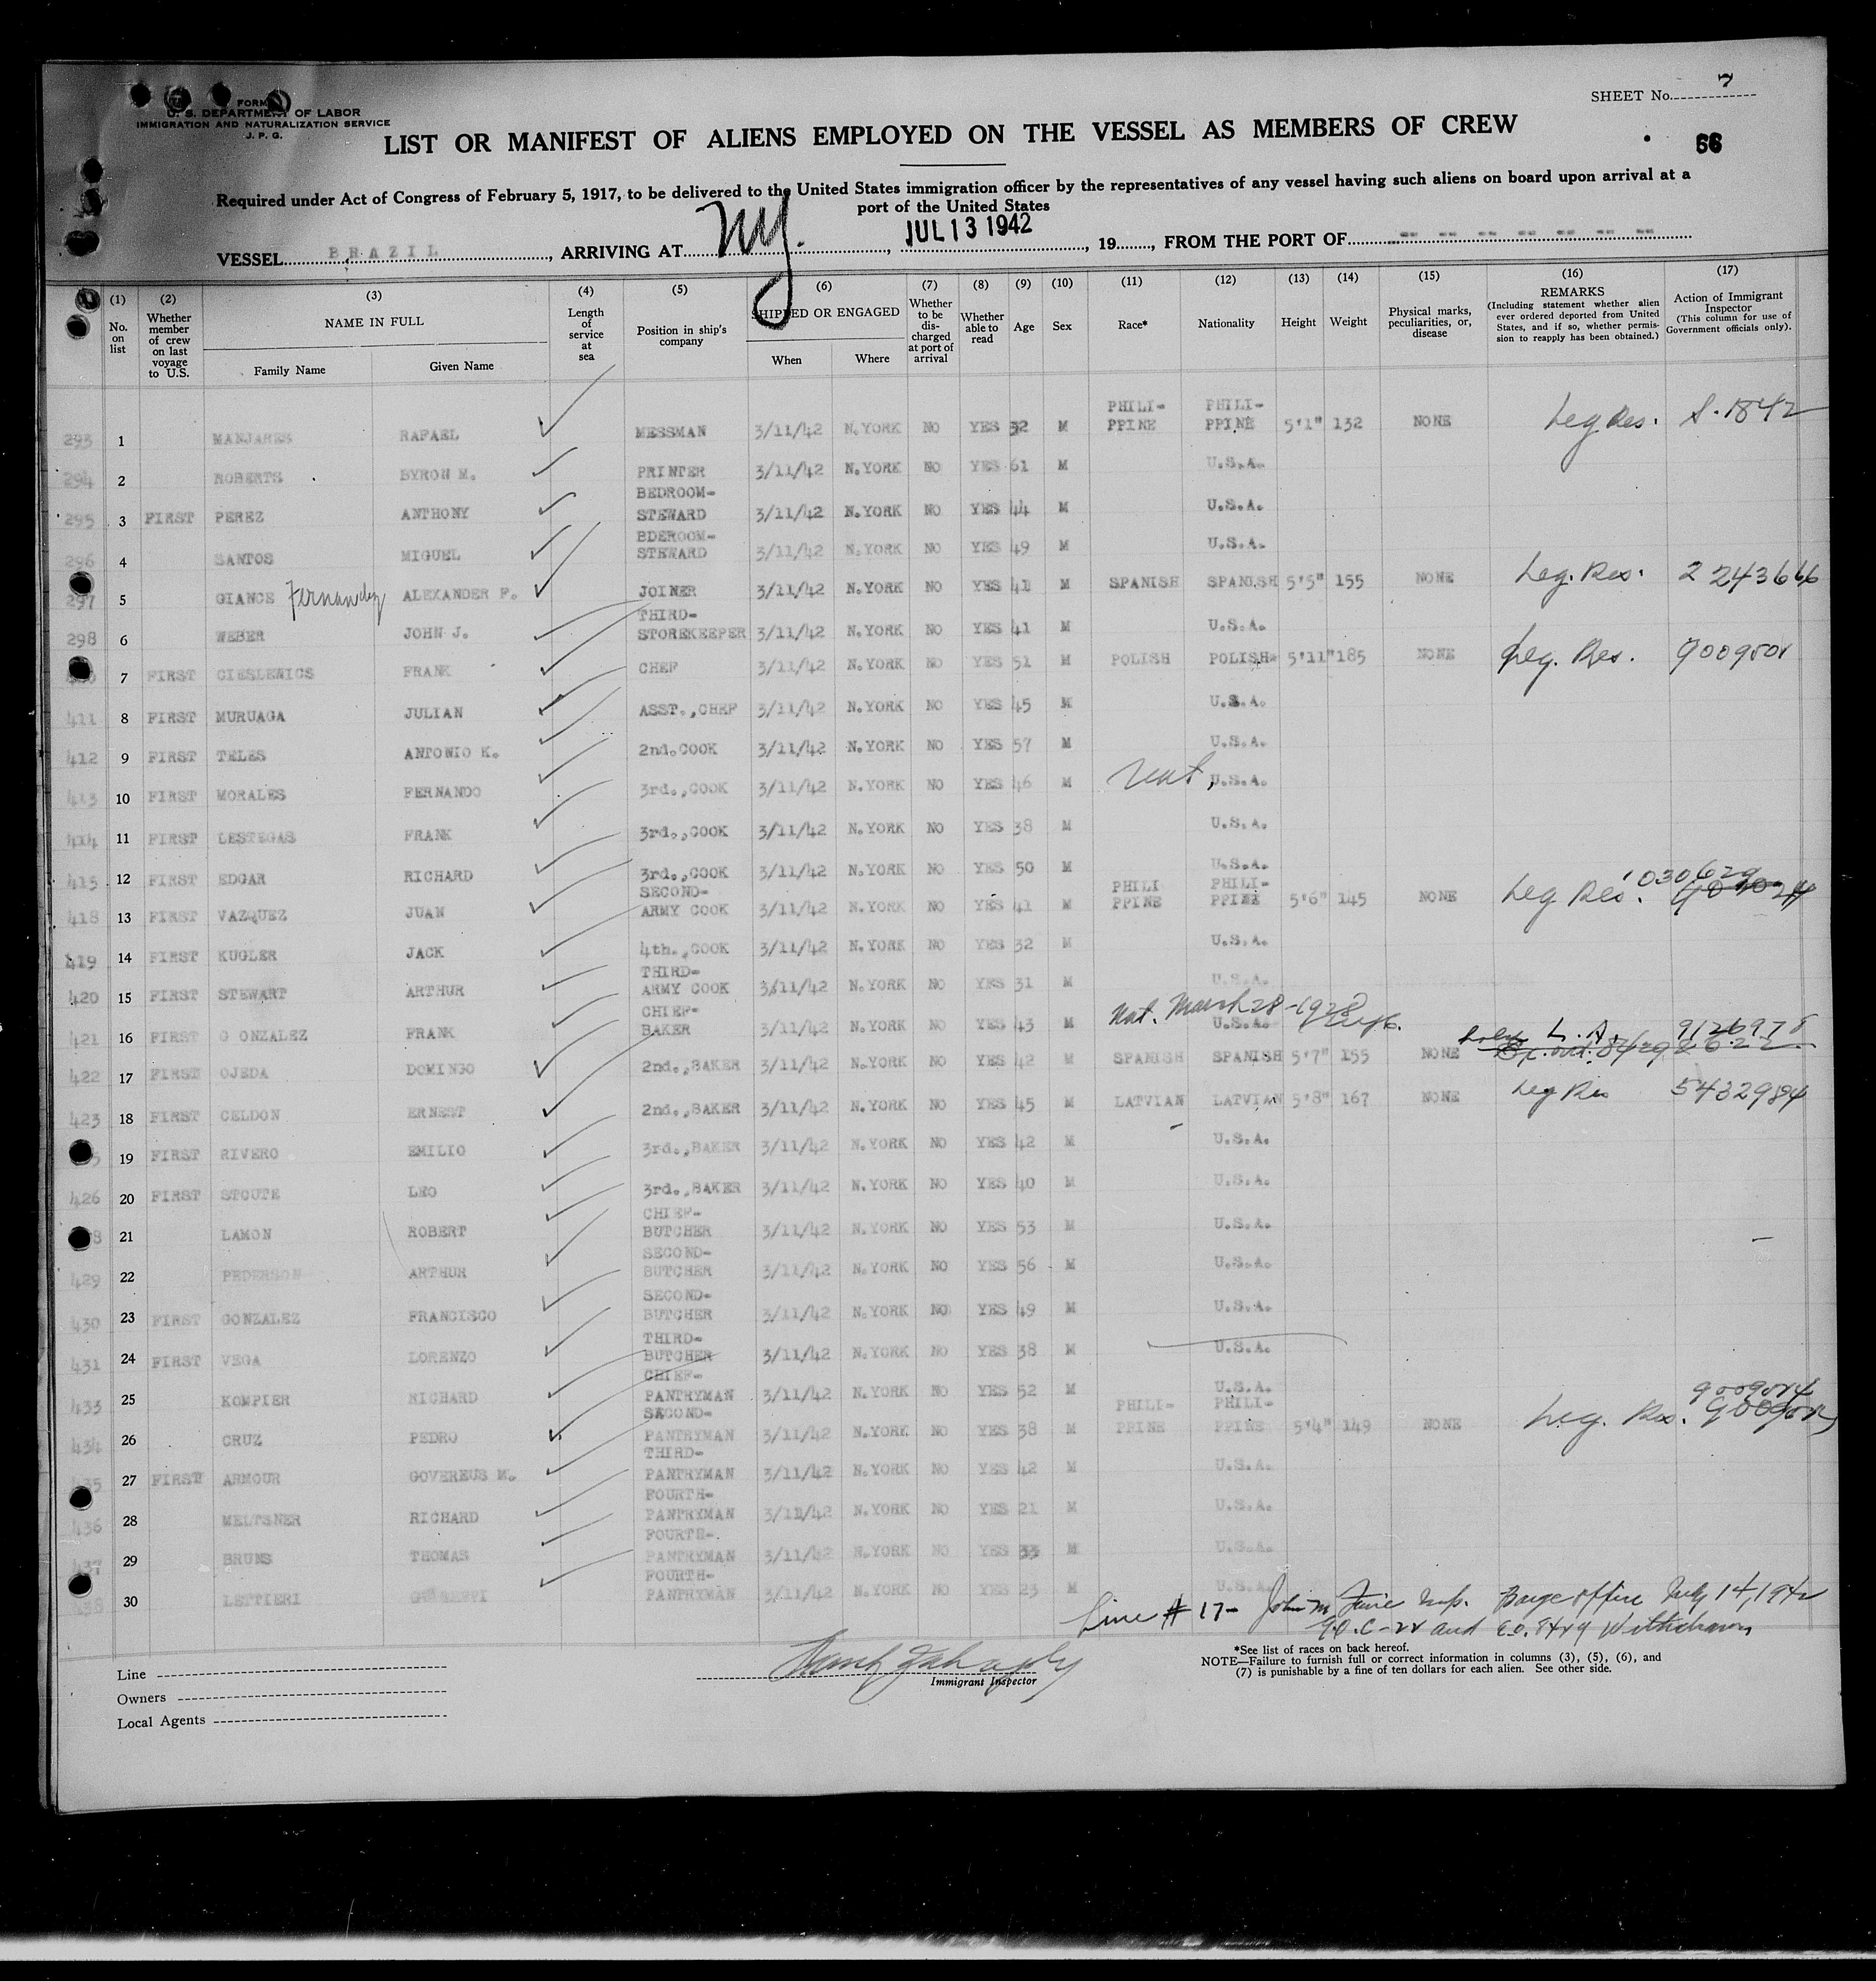 SHEET No. 7
FORM
U. S. DEPARTMENT OF LABOR
IMMIGRATION AND NATURALIZATION SERVICE
J. P. G.
LIST OR MANIFEST OF ALIENS EMPLOYED ON THE VESSEL AS MEMBERS OF CREW
56
Required under Act of Congress of February 5, 1917, to be delivered to the United States immigration officer by the representatives of any vessel having such aliens on board upon arrival at a
port of the United States
VESSEL BRAZIL, ARRIVING AT NY., JUL 13 1942, 19, FROM THE PORT OF
(1) No. on list
(2) Whether member of crew on last voyage to U.S.
(3) NAME IN FULL Family Name Given Name
(4) Length of service at sea
(5) Position in ship's company
(6) SHIPPED OR ENGAGED When Where
(7) Whether to be discharged at port of arrival
(8) Whether able to read
(9) Age
(10) Sex
(11) Race*
(12) Nationality
(13) Height
(14) Weight
(15) Physical marks, peculiarities, or, disease
(16) REMARKS (Including statement whether alien ever ordered deported from United States, and if so, whether permission to reapply has been obtained.)
(17) Action of Immigrant Inspector (This column for use of Government officials only).
293 1 MANJARES RAFAEL MESSMAN 3/11/42 N.YORK NO YES 32 M PHILI-PPINE PHILI-PPINE 5'1" 132 NONE Leg Res. S-1842
294 2 ROBERTS BYRON M. PRINTER 3/11/42 N.YORK NO YES 61 M U.S.A.
295 3 FIRST PEREZ ANTHONY BEDROOM-STEWARD 3/11/42 N.YORK NO YES 44 M U.S.A.
296 4 SANTOS MIGUEL BDEROOM-STEWARD 3/11/42 N.YORK NO YES 49 M U.S.A.
297 5 GIANCE Fernandez ALEXANDER F. JOINER 3/11/42 N.YORK NO YES 41 M SPANISH SPANISH 5'5" 155 NONE Leg. Res. 2243666
298 6 WEBER JOHN J. THIRD-STOREKEEPER 3/11/42 N.YORK NO YES 41 M U.S.A.
7 FIRST CIESLEWICS FRANK CHEF 3/11/42 N.YORK NO YES 51 M POLISH POLISH 5'11" 185 NONE Leg. Res. 9009501
411 8 FIRST MURUAGA JULIAN ASST.,CHEF 3/11/42 N.YORK NO YES 45 M U.S.A.
412 9 FIRST TELES ANTONIO K. 2nd.COOK 3/11/42 N.YORK NO YES 57 M U.S.A.
413 10 FIRST MORALES FERNANDO 3rd.,COOK 3/11/42 N.YORK NO YES 46 M Nat, U.S.A.
414 11 FIRST LESTEGAS FRANK 3rd.,COOK 3/11/42 N.YORK NO YES 38 M U.S.A.
415 12 FIRST EDGAR RICHARD 3rd.,COOK 3/11/42 N.YORK NO YES 50 M U.S.A.
418 13 FIRST VAZQUEZ JUAN SECOND-ARMY COOK 3/11/42 N.YORK NO YES 41 M PHILI PPINE PHILI-PPINE 5'6" 145 NONE Leg Res.
419 14 FIRST KUGLER JACK 4th.,COOK 3/11/42 N.YORK NO YES 32 M U.S.A.
420 15 FIRST STEWART ARTHUR THIRD-ARMY COOK 3/11/42 N.YORK NO YES 31 M U.S.A.
421 16 FIRST G ONZALEZ FRANK CHIEF-BAKER 3/11/42 N.YORK NO YES 43 M Nat. March 28-1928 U.S.A.
422 17 FIRST OJEDA DOMINGO 2nd.,BAKER 3/11/42 N.YORK NO YES 42 M SPANISH SPANISH 5'7" 155 NONE L. A. 9126978
423 18 FIRST CELDON ERNEST 2nd.,BAKER 3/11/42 N.YORK NO YES 45 M LATVIAN LATVIAN 5'8" 167 NONE Leg Res 5432984
19 FIRST RIVERO EMILIO 3rd.,BAKER 3/11/42 N.YORK NO YES 42 M U.S.A.
426 20 FIRST STOUTE LEO 3rd.,BAKER 3/11/42 N.YORK NO YES 40 M U.S.A.
21 LAMON ROBERT CHIEF-BUTCHER 3/11/42 N.YORK NO YES 53 M U.S.A.
429 22 PEDERSON ARTHUR SECOND-BUTCHER 3/11/42 N.YORK NO YES 56 M U.S.A.
430 23 FIRST GONZALEZ FRANCISCO SECOND-BUTCHER 3/11/42 N.YORK NO YES 49 M U.S.A.
431 24 FIRST VEGA LORENZO THIRD-BUTCHER 3/11/42 N.YORK NO YES 38 M U.S.A.
433 25 KOMPIER RICHARD CHIEF-PANTRYMAN 3/11/42 N.YORK NO YES 52 M U.S.A.
434 26 CRUZ PEDRO SECOND-PANTRYMAN 3/11/42 N.YORK NO YES 38 M PHILI-PPINE PHILI-PPINE 5'4" 149 NONE Leg. Res.
27 FIRST ARMOUR GOVEREUS M. THIRD-PANTRYMAN 3/11/42 N.YORK NO YES 42 M U.S.A.
436 28 MELTSNER RICHARD FOURTH-PANTRYMAN 3/11/42 N.YORK NO YES 21 M U.S.A.
437 29 BRUNS THOMAS FOURTH-PANTRYMAN 3/11/42 N.YORK NO YES 33 M U.S.A.
438 30 LETTIERI FOURTH-PANTRYMAN 3/11/42 N.YORK NO YES 23 M U.S.A.
Line # 17- John M. Insp. Barge office July 14, 1942
G.O. C-22 and E.O. 8429 Withdrawn
Immigrant Inspector
*See list of races on back hereof.
NOTE—Failure to furnish full or correct information in columns (3), (5), (6), and
(7) is punishable by a fine of ten dollars for each alien. See other side.
Line
Owners
Local Agents